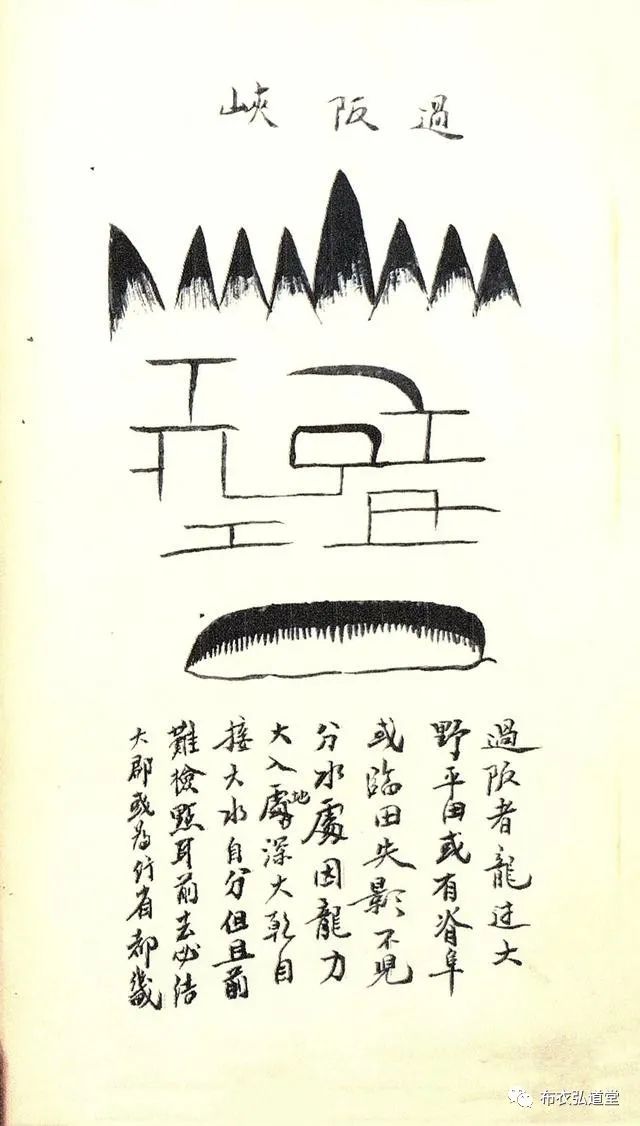 過阪峽
過阪者龍过大
野平田或有脊阜
或臨田失影不見
分水處因龍力
大入處地深大乾自
接大水自分但且前
難檢點耳前去必结
大郡或为行省都畿
布衣弘道堂